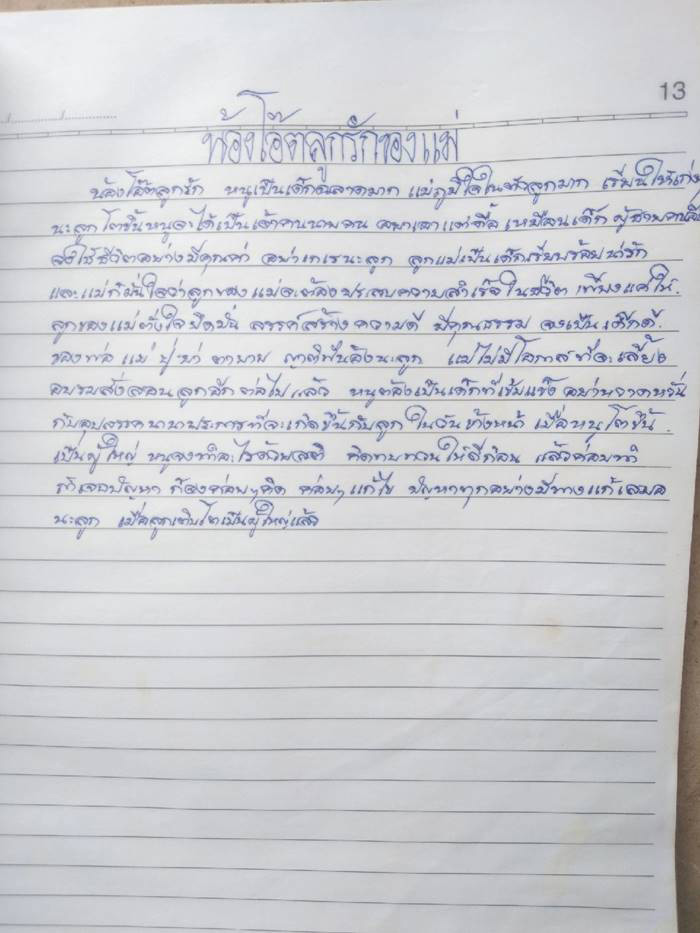 13
น้องโอ๊ตลูกรักของแม่
น้องโอ๊ตลูกรัก หนูเป็นเด็กฉลาดมาก แม่ภูมิใจในตัวลูกมาก เรียนให้เก่ง
นะลูก โตขึ้นหนูจะได้เป็นเจ้าคนนายคน อย่าเอาแต่ดื้อ เหมือนเด็ก
จงใช้ชีวิตอย่างมีคุณค่า อย่าเกเรนะลูก ลูกแม่เป็นเด็กเรียบร้อยน่ารัก
และแม่ก็มั่นใจว่าลูกของแม่จะต้องประสบความสำเร็จในชีวิต เพียงแค่ให้
ลูกของแม่ตั้งใจยึดมั่น สรรค์สร้างความดี มีคุณธรรม จงเป็นเด็กดี
ของพ่อ แม่ ปู่ ย่า ตา ยาย ญาติพี่น้องนะลูก แม่ไม่มีโอกาสที่จะเลี้ยง
อบรมสั่งสอนลูกอีกต่อไปแล้ว หนูต้องเป็นเด็กที่เข้มแข็ง อย่าหวาดหวั่น
กับอุปสรรคนานาประการที่จะเกิดขึ้นกับลูก ในวันข้างหน้า เมื่อหนูโตขึ้น
เป็นผู้ใหญ่ หนูจงทำอะไรด้วยสติ คิดทบทวนให้ดีก่อน แล้วค่อยทำ
ถ้าเจอปัญหา ก็จงค่อยๆคิด ค่อยๆแก้ไข ปัญหาทุกอย่างมีทางแก้เสมอ
นะลูก เมื่อลูกเติบโตเป็นผู้ใหญ่แล้ว